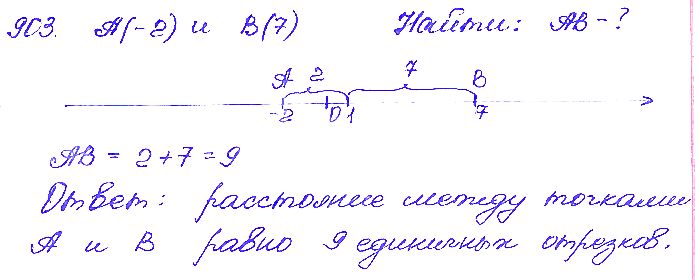 903. A(-2) и B(7) Найти: AB-?
A 2 7 B
-2 0 1 7
AB = 2+7=9
Ответ: расстояние между точками
A и B равно 9 единичных отрезков.